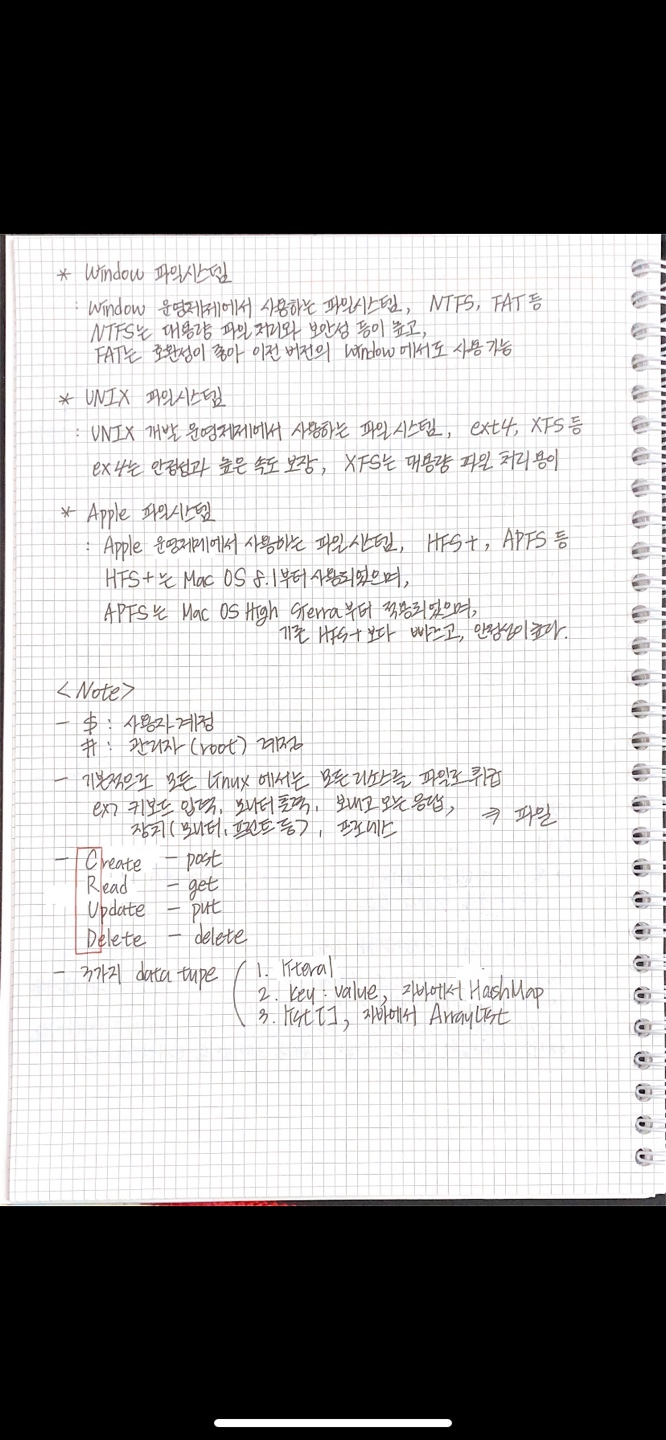 * Window 파일시스템
: Window 운영체제에서 사용하는 파일시스템, NTFS, FAT 등
NTFS는 대용량 파일 처리와 보안성 등이 높고,
FAT는 호환성이 좋아 이전 버전의 Window에서도 사용 가능
* UNIX 파일시스템
: UNIX 개발 운영체제에서 사용하는 파일 시스템, ext4, XFS 등
ex4는 안정성과 높은 속도 보장, XFS는 대용량 파일 처리 용이
* Apple 파일시스템
: Apple 운영체제에서 사용하는 파일 시스템, HFS+, APFS 등
HFS+는 Mac OS 8.1부터 사용되었으며,
APFS는 Mac OS High Sierra부터 적용되었으며,
기존 HFS+보다 빠르고, 안정성이 높다.
<Note>
- $ : 사용자 계정
# : 관리자(root) 계정
- 기본적으로 모든 Linux에서는 모든 리소스를 파일로 취급
ex) 키보드 입력, 모니터 출력, 보내고 받는 응답, ⇒ 파일
장치(모니터, 프린트 등), 프로세스
- Create - post
Read - get
Update - put
Delete - delete
- 3가지 data type ( 1. literal
2. key : value, 자바에서 HashMap
3. list [ ], 자바에서 ArrayList